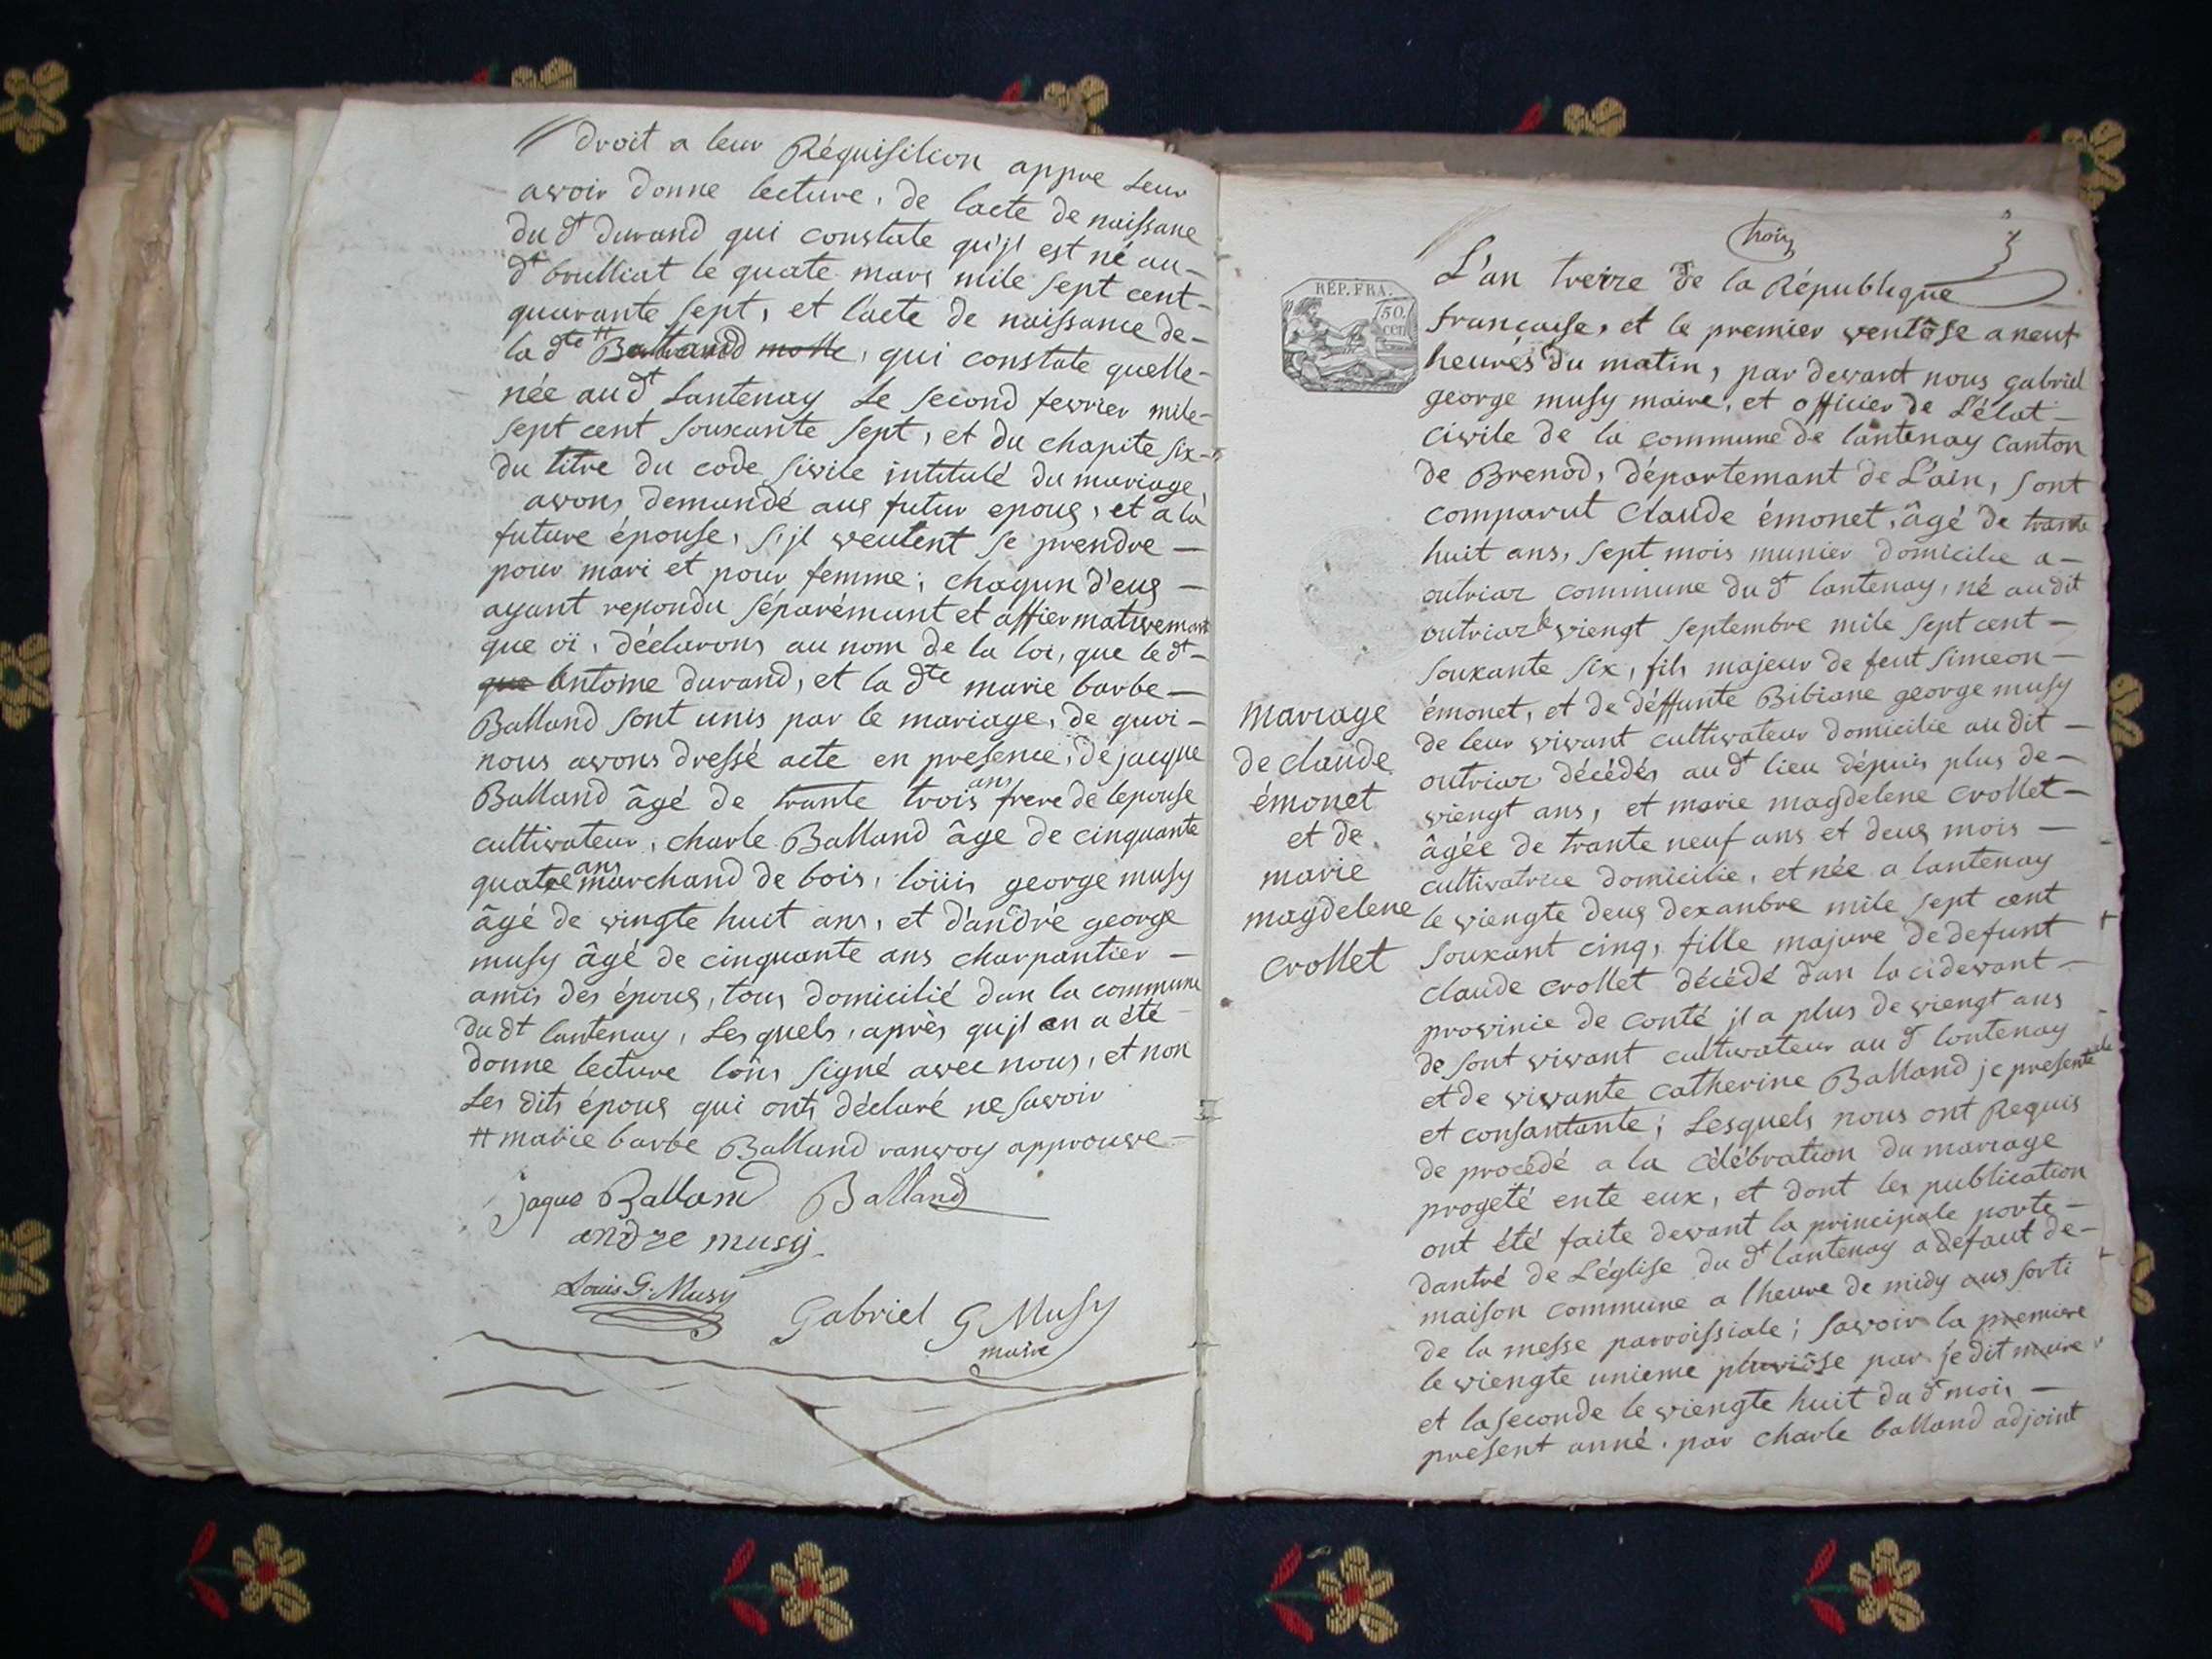 droit a leur Réquisition appre leur
avoir donne lecture, de lacte de naissane
du dt durand qui constate qu'jl est né au-
dt brulliat le quate mars mile sept cent-
quarante sept, et lacte de naissance de-
la dte # qui constate quelle-
née au dt Lantenay Le second fevrier mile-
sept cent souxante sept, et du chapite six-
du titre du code sivile intitulé du mariage,
avons demandé aux futur epoux, et a la
future épouse, s'jl veulent se prendre —
pour mari et pour femme; chaqun d'eux —
ayant repondu séparémant et affiermativemant
que oï, déclarons au nom de la loi, que le dt-
que Antoine durand, et la dte marie barbe —
Balland sont unis par le mariage, de quoi -
nous avons dressé acte en presence, de jacque
Balland âgé de trante trois ans frere de lepouse
cultivateur, charle Balland âge de cinquante
quatre ans marchand de bois, loüis george musy
âgé de vingte huit ans, et d'andré george
musy âgé de cinquante ans charpantier —
amis des époux, tous domicilié dan la commune
du dt lantenay, Lesquels, après qu'jl en a été
donne lecture lons signé avec nous, et non
Les dits époux qui onts déclaré ne savoir
# marie barbe Balland ranvoy approuve —
Jaque Balland Balland
andre musy
Louis G. Musy
Gabriel G Musy
maire
trois
L'an treize de la République
RÉP. FRA.
50.
cen
francaise, et le premier ventôse a neuf
heures du matin, par devant nous gabriel
george musy maire, et officier de L'état -
civile de la commune de lantenay canton
de Brenod, départemant de L'ain, sont
comparut Claude émonet, âgé de trante
huit ans, sept mois munier domicilie a -
outriaz commune du dt lantenay, né audit
outriaz le viengt septembre mile sept cent —
souxante six, fils majeur de feut simeon —
mariage
de claude
émonet
et de
marie
magdelene
crollet
émonet, et de déffunte Bibiane george musy
de leur vivant cultivateur domicilie audit —
outriaz décédés au dt lieu dépuis plus de —
viengt ans, et marie magdelene crollet —
âgée de trante neuf ans et deux mois —
cultivatrice domicilie, et née a lantenay
le viengte deux dexanbre mile sept cent
souxant cinq, fille majure de defunt
claude crollet décédé dan la cidevant —
provinie de conté jl a plus de viengt ans
de sont vivant cultivateur au dt lontenay
et de vivante catherine Balland je presente
et consantante; Lesquels nous ont Requis
de procédé a la célébration du mariage
progeté ente eux, et dont les publication
ont été faite devant la principale porte —
dantré de L'église du dt lantenay a defaut de —
maison commune a lheure de midy aux sorti
de la messe parroissiale; savoir la premiere
le viengte unieme pluviôse par je dit maire
et la seconde le viengte huit du dt mois —
present anné. par charle balland adjoint